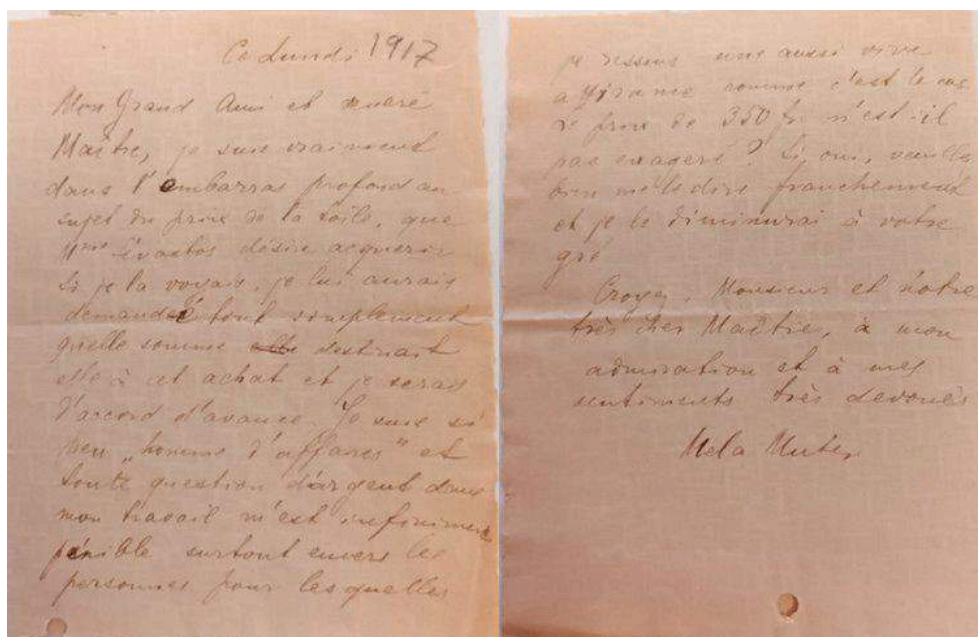 Ce Lundi 1917
Mon Grand Ami et vénéré
Maître, je suis vraiment
dans l'embarras profond au
sujet du prix de la toile, que
Mme Évastos désire acquerir
Si je la voyais, je lui aurais
demandé tout simplement
quelle somme destinait
elle à cet achat et je serais
d'accord d'avance. Je suis si
peu „homme d'affaires" et
toute question d'argent dans
mon travail m'est infiniment
pénible surtout envers les
personnes pour lesquelles
je ressens une aussi vive
comme c'est le cas
Le prix de 350 fr. n'est-il
pas exagéré? Si, oui, veuillez
bien me le dire franchement
et je le diminurai à votre
gré
Croyez, Monsieur et nôtre
très cher Maître, à mon
admiration et à mes
sentiments très dévoués
Mela Muter